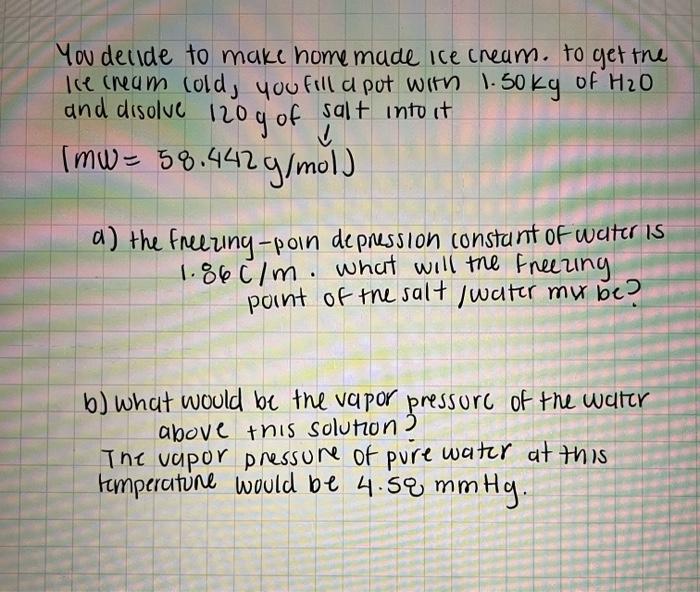 You decide to make homemade ice cream. to get the
ice cream cold, you fill a pot with 1.50kg of H2O
and disolve 120 g of salt into it
↓
(mw= 58.442 g/mol)
a) the freezing-poin depression constant of water is
1.86 C/m. what will the freezing
point of the salt /water mix be?
b) what would be the vapor pressure of the water
above this solution?
The vapor pressure of pure water at this
temperature would be 4.58 mmHg.